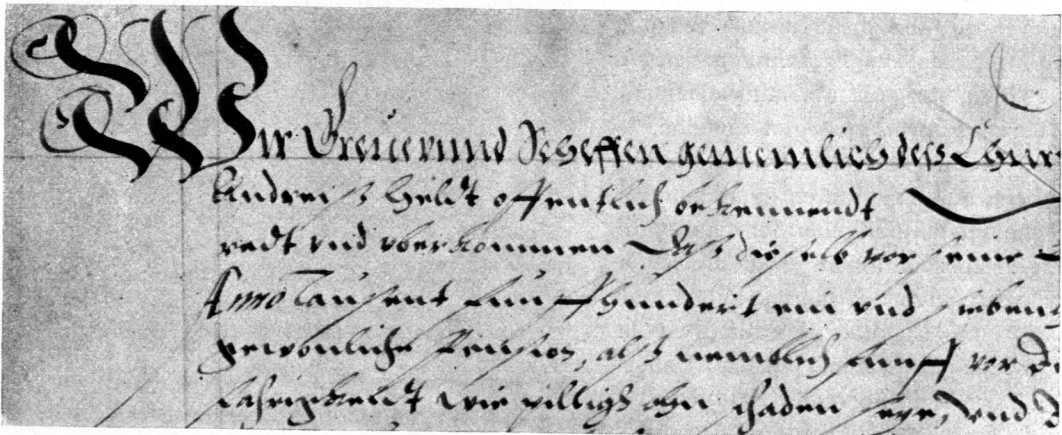 Wir Greue vnnd Scheffen gemeinlich deß Chur
Andreiß Heldt offentlich bekennendt
redt vnd vberkommen Daß dieselb vor seine
Anno Tausent funffhundert ein vnd sieben
gewonliche Pension, alß nemblich funff vor
wie pilligh ohn schaden seye, vnd